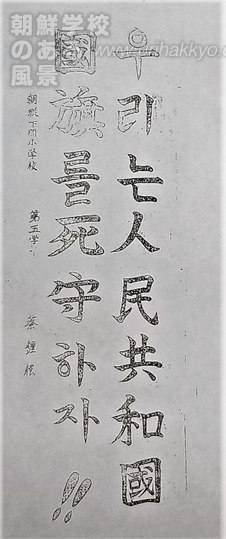 朝鮮学校
のある www.urihakkyo.com
風景
우리는人民共和國
國旗를死守하자!!
下関小学校 第五学 蔡鐘